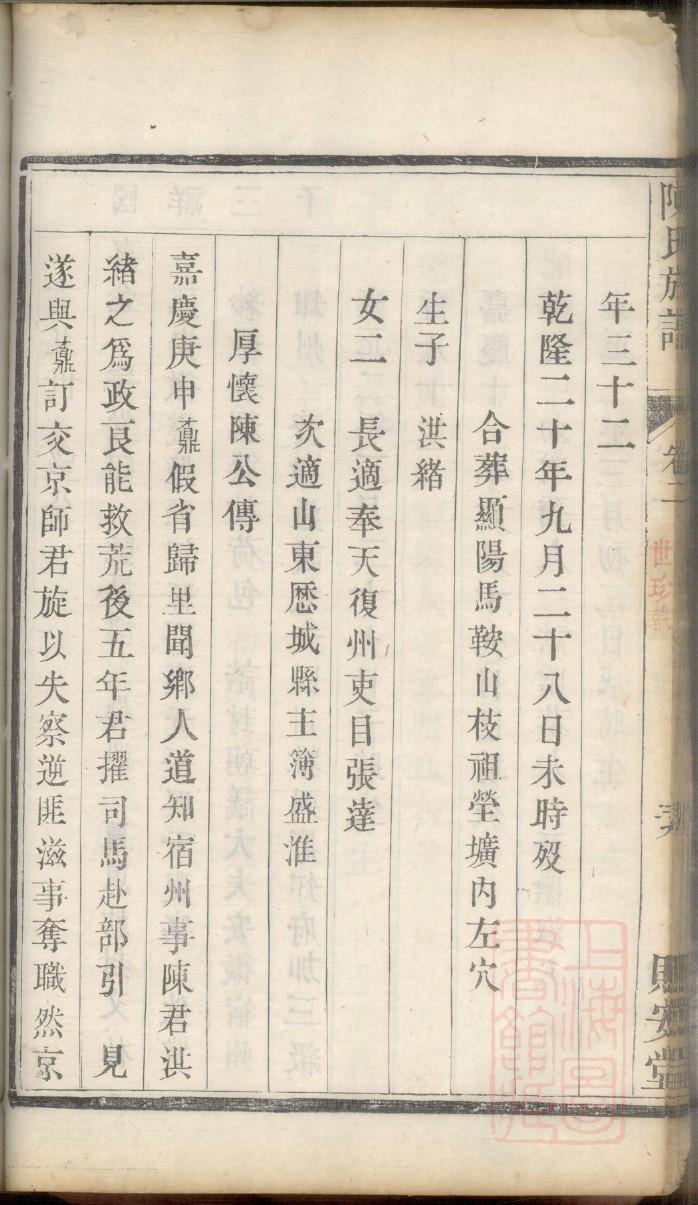 陳氏族譜
卷二
世珍
年三十二
乾隆二十年九月二十八日未時歿
合葬顯陽馬鞍山枝祖塋壙內左穴
生子 洪緒
女二 長適奉天復州吏目張達
次適山東歷城縣主簿盛淮
厚懷陳公傳
嘉慶庚申鼒假省歸里聞鄉人道知宿州事陳君洪
緒之爲政良能救荒後五年君擢司馬赴部引 見
遂與鼒訂交京師君旋以失察逆匪滋事奪職然京
上海圖書館藏